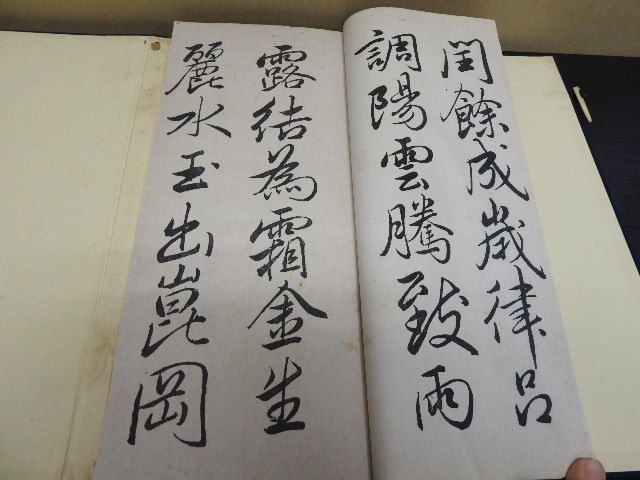 閏餘成歲律呂
調陽雲騰致雨
露結為霜金生
麗水玉出崑岡